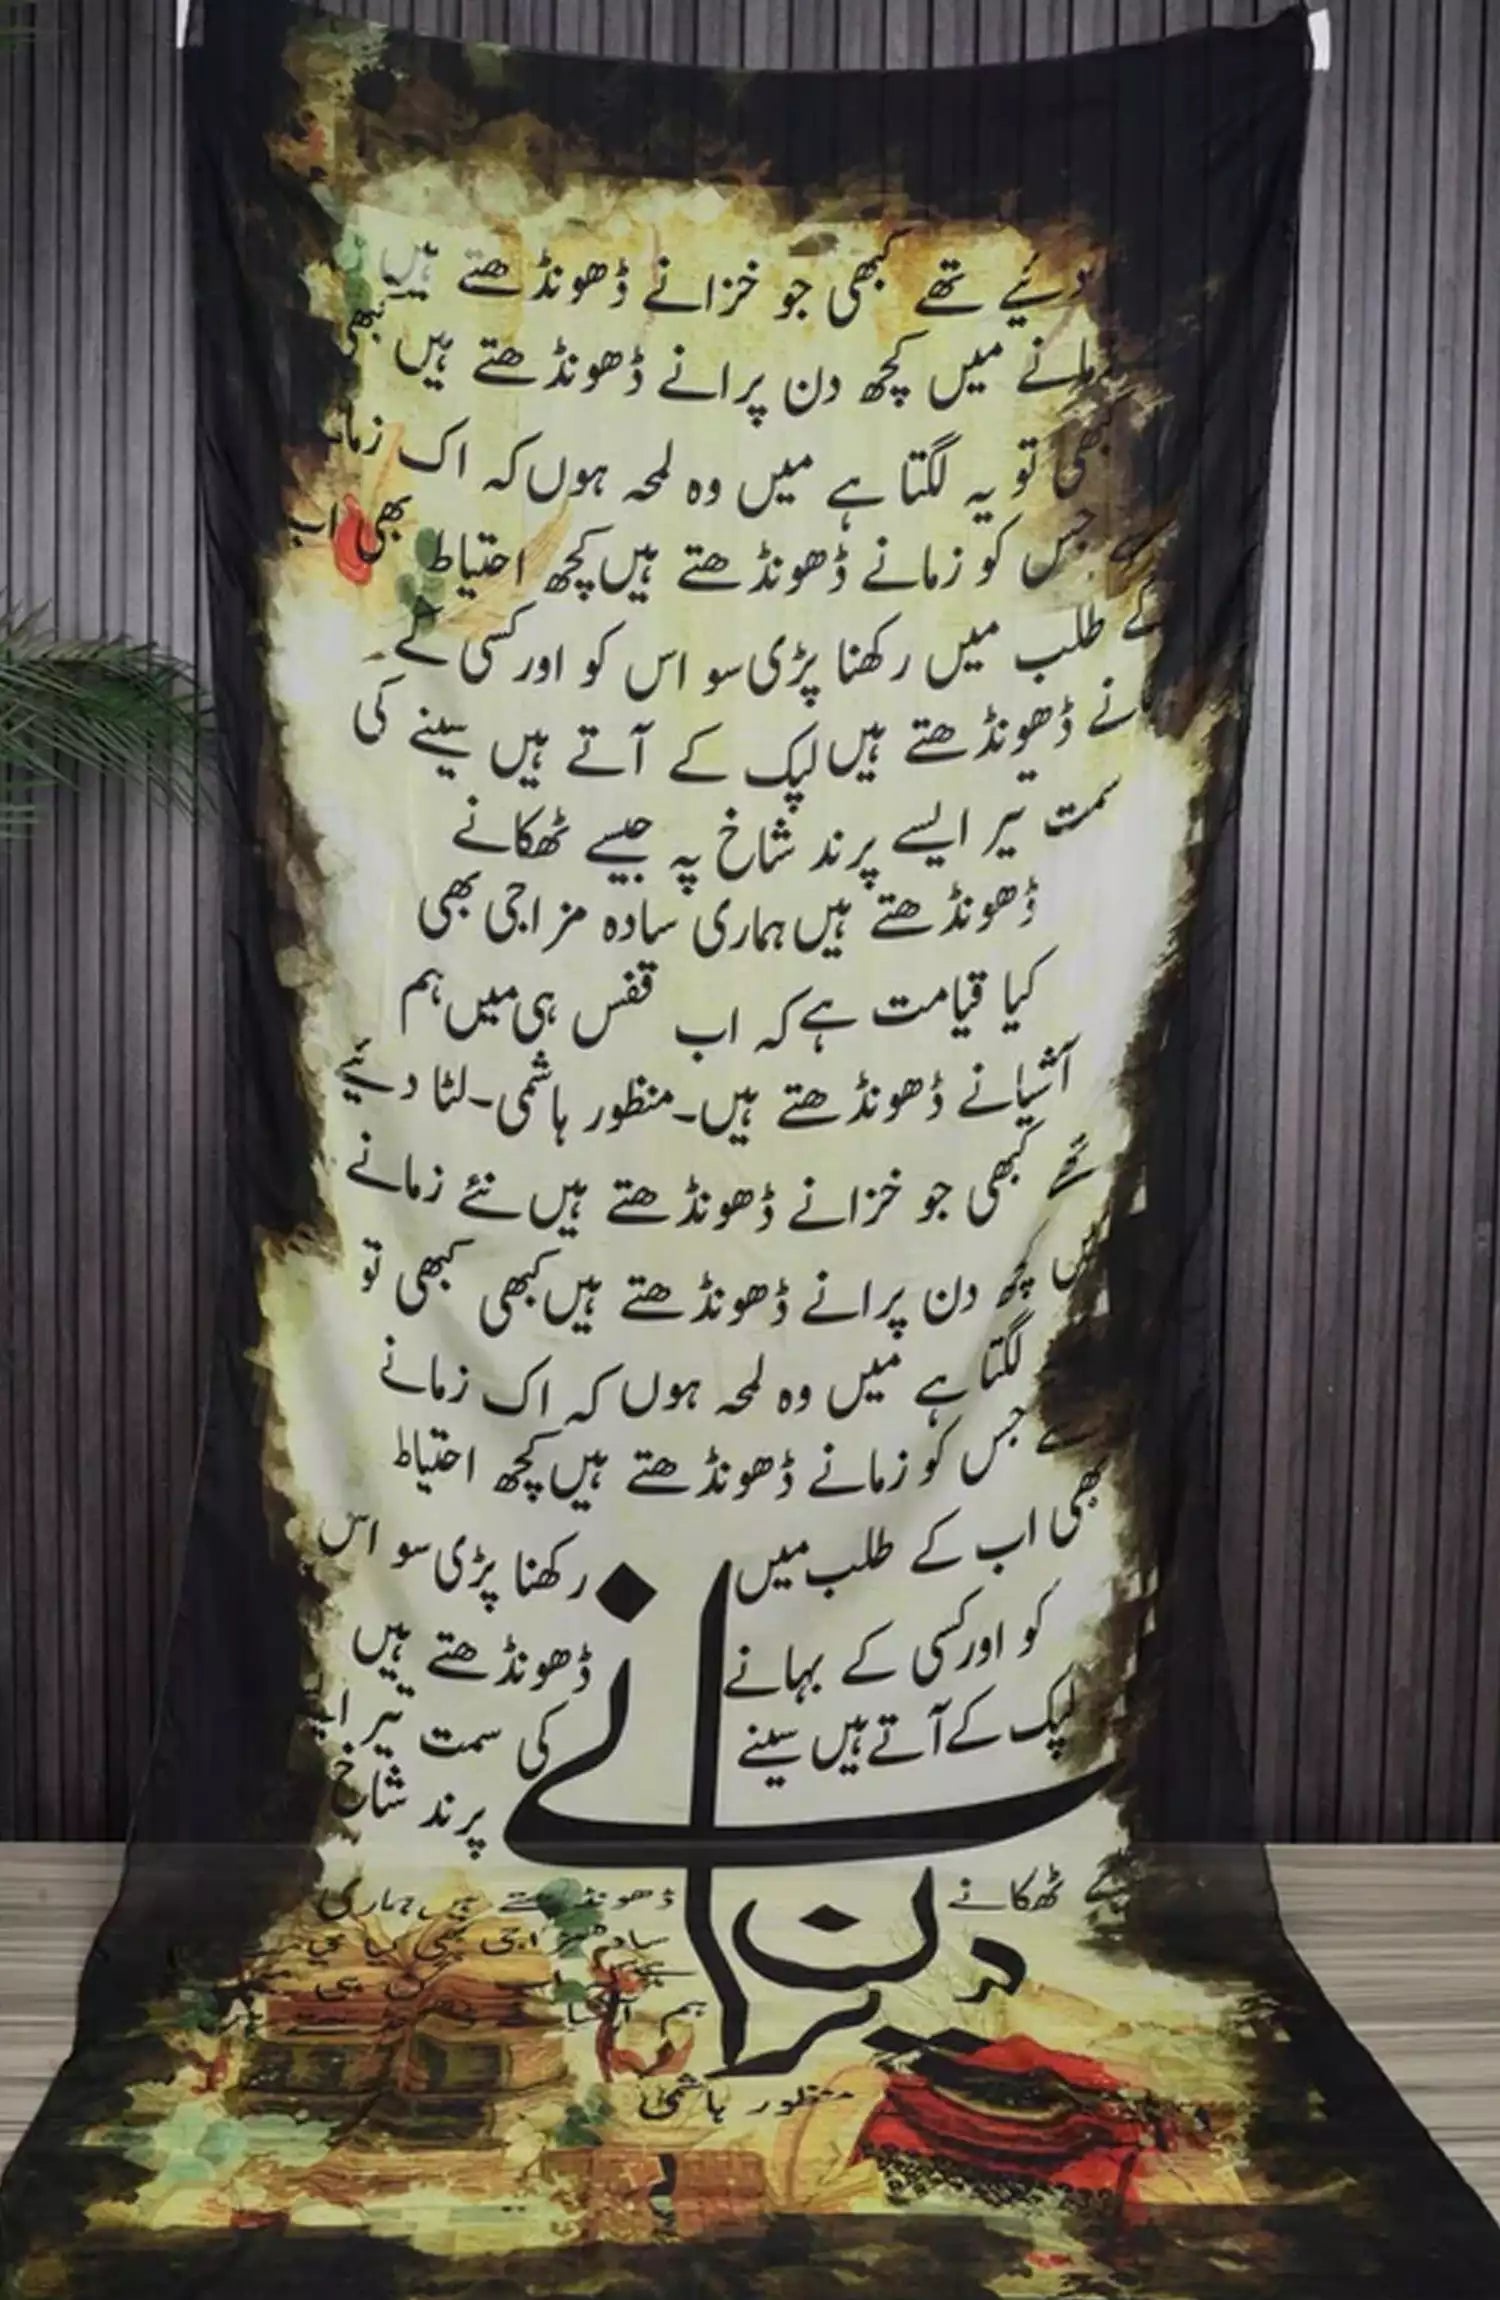 دئیے تھے کبھی جو خزانے ڈھونڈھتے ہیں
زمانے میں کچھ دن پرانے ڈھونڈھتے ہیں کبھی
کبھی تو یہ لگتا ہے میں وہ لمحہ ہوں کہ اک زمانے
سے جس کو زمانے ڈھونڈھتے ہیں کچھ احتیاط بھی اب
کے طلب میں رکھنا پڑی سو اس کو اور کسی کے
بہانے ڈھونڈھتے ہیں لپک کے آتے ہیں سینے کی
سمت تیر ایسے پرند شاخ پہ جیسے ٹھکانے
ڈھونڈھتے ہیں ہماری سادہ مزاجی بھی
کیا قیامت ہے کہ اب قفس ہی میں ہم
آشیانے ڈھونڈھتے ہیں۔منظور ہاشمی۔لٹا دئیے
تھے کبھی جو خزانے ڈھونڈھتے ہیں نئے زمانے
میں کچھ دن پرانے ڈھونڈھتے ہیں کبھی کبھی تو
لگتا ہے میں وہ لمحہ ہوں کہ اک زمانے
سے جس کو زمانے ڈھونڈھتے ہیں کچھ احتیاط
بھی اب کے طلب میں رکھنا پڑی سو اس
کو اور کسی کے بہانے ڈھونڈھتے ہیں
لپک کے آتے ہیں سینے کی سمت تیر ایسے
پرند شاخ
پے ٹھکانے ڈھونڈھتے ہیں ہماری
سادہ مزاجی بھی کیا
ہم
دن پرانے
منظور ہاشمی